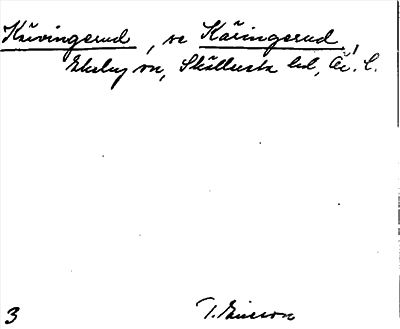 Kävingerud, se Käringerud,
Ekeby sn, Skyllersta hd, Ör. l.
3 T. Ericson